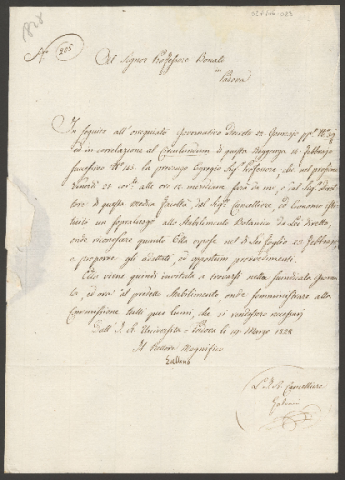 1828
N.° 205
Al Signor Professore Bonato
Padova
In seguito all'ossequiato Governativo Decreto 22 Gennajo
ed in correlazione al Communicato di questa Reggenza 14 Febbrajo
N.° 145. la prevengo Egregio Sig.r Professore, che nel prossimo
Venerdì 21 corr.e alle ore 12 meridiane sarà da me, e dal Sig.r Diret-
tore di questa Medica Facoltà, dal Sig.r Cancelliere, ed Economo isti-
tuito un sopraluogo allo Stabilimento Botanico da Lei diretto,
onde riconoscere quanto Ella espose nel di Lei foglio 22 Febbrajo
e proporre gli adattati, ed opportuni provvedimenti.
Ella viene quindi invitata a trovarsi nella sunnidicata giorna-
ta, ed ora al predetto Stabilimento, onde somministrare alla
Commissione tutti que' lumi, che si rendessero necessarj
Dall' I. R. Università - Padova li 19 Marzo 1828
Il Rettore Magnifico
L' I. R. Cancelliere